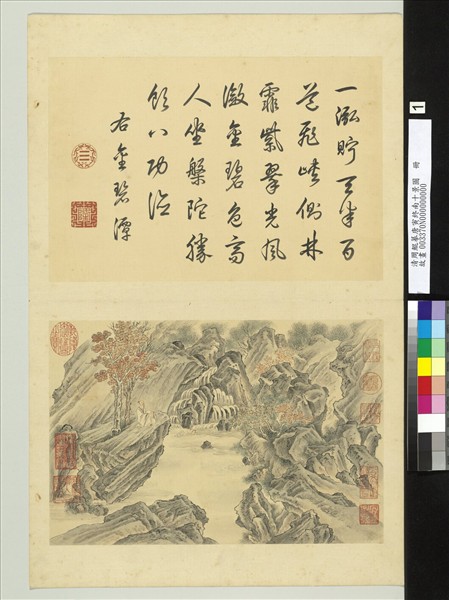 一泓貯天半百
道飛崚側林
霏紫翠光風
激金碧色高
人坐盤陀勝
飲八功德
右金碧潭
1
清周鯤摹唐寅終南十景圖 冊
故畫003370N000000000